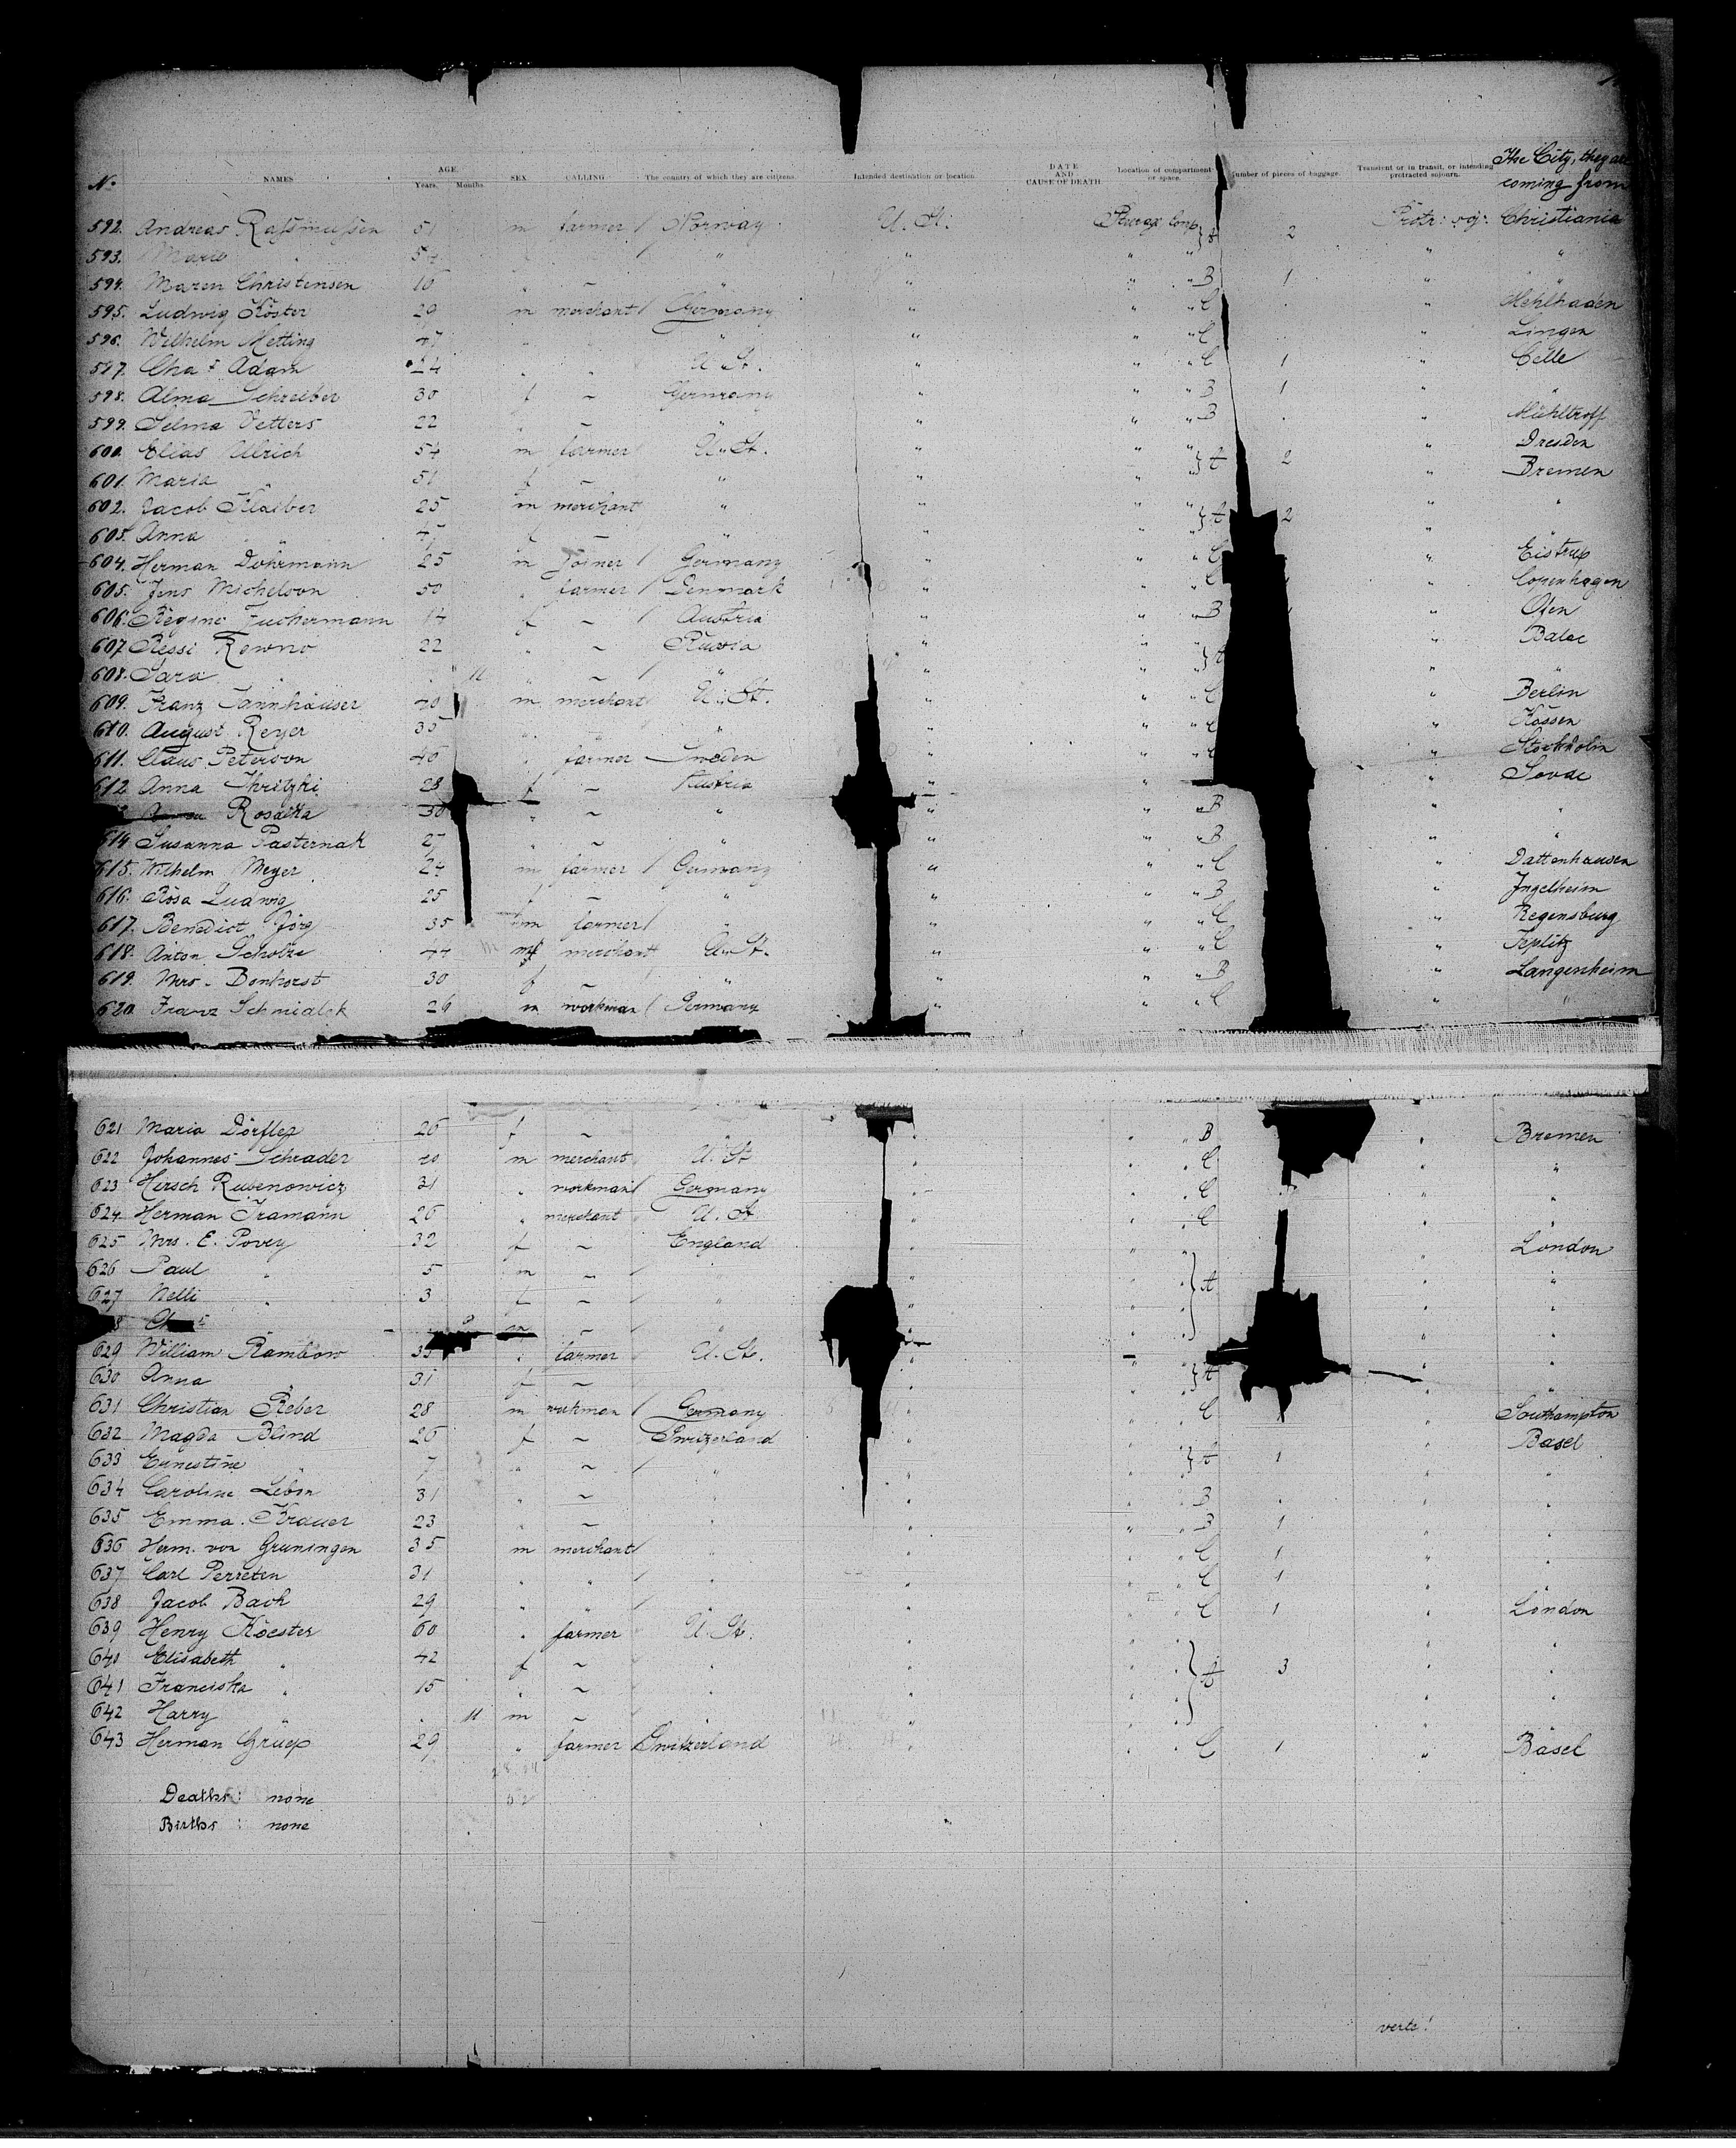 The City, they are
coming from
N. NAMES AGE. Years. Months. SEX CALLING The country of which they are citizens. Intended destination or location. DATE AND CAUSE OF DEATH. Location of compartment or space. Number of pieces of baggage. Transient or in transit, or intending protracted sojourn.
592. Andreas Rassmussen 51 m farmer Norway U. St. 2 Protr: soj: Christiania
593. Marie " " " " " "
594. Maren Christensen 16 " ~ " " " " B 1 " "
595. Ludwig Köster 29 m merchant Germany " " " C "
596. Wilhelm Metting " " " " " " C " Lingen
597. Chas Adam 24 " " U. St. " " " C 1 " Celle
598. Alma Schreiber 30 f ~ Germany " " " B 1 " "
599. Selma Vetters 22 " ~ " " " " B " Mühltroff
600. Elias Ulrich 54 m farmer U. St. " " " A 2 " Dresden
601. Maria " 51 f ~ " " " " " Bremen
602. Jacob Klaiber 25 m merchant " " " " A 2 " "
603. Anna " f ~ " " " " " "
604. Herman Dohrmann 25 m joiner Germany " " " C " Eistrup
605. Jens Michelson 50 " farmer Denmark " " " C " Copenhagen
606. Regine Zuckermann 14 f ~ Austria " " " B " Ofen
607. Ressi Rewno 22 " ~ Russia " " " A "
608. Sara " 11 " ~ " " " " " "
609. Franz Tannhäuser 40 m merchant U. St. " " " C " Berlin
610. August Reyer 35 " " " " " " C " Kössen
611. Claus Peterson 40 " farmer Sweden " " " C " Stockholm
612. Anna 28 f ~ Austria " " "
Rosalka 30 " ~ " " " " B " "
614 Susanna Pasternak 27 " ~ " " " " B " "
615. Wilhelm Meyer 24 m farmer Germany " " " C " Dattenhausen
616. Rosa Ludwig 25 f ~ " " " " B " Ingelheim
617. Benedict Jörg 35 m farmer " " " " C " Regensburg
618. Anton Scholze 44 m merchant U. St. " " " C " Teplitz
619. Mrs. Bonhorst 30 f ~ " " " " B " Langenheim
620. Franz Schmialek 26 m workman Germany " " " C " "
621 Maria Dörfler 26 f ~ " " " " B " Bremen
622 Johannes Schrader 40 m merchant U. St " " " C " "
623 Hirsch Rubenowicz 31 " workman Germany " " " C " "
624 Herman Tramann 26 " merchant U. St. " " " C " "
625 Mrs. E. Povey 32 f ~ England " " " " London
626 Paul " 5 m ~ " " " " A " "
627 Nelli " 3 f ~ " " " " " "
8 m ~ " " " " " "
629 William Rambow 35 " farmer U. St. " " " A " "
630 Anna " 31 f ~ " " " " " "
631 Christian Reber 28 m workman Germany " " " C " Southampton
632 Magda Blind 26 f ~ Switzerland " " " A 1 " Basel
633 Ernestine " 7 " ~ " " " " " "
634 Caroline Lebon 31 " ~ " " " " B " " "
635 Emma Krauer 23 " ~ " " " " B 1 " "
636 Herm. von Gruningen 35 m merchant " " " " C 1 " "
637 Carl Perreten 31 " " " " " " C 1 " "
638 Jacob Bach 29 " " " " " " C 1 " London
639 Henry Köester 60 " farmer U. St. " " " A 3 " "
640 Elisabeth " 42 f ~ " " " " " "
641 Franciska " 15 " ~ " " " " " "
642 Harry " 11 m ~ " " " " " "
643 Herman Grüep 29 " farmer Switzerland " " " C 1 " Basel
Deaths: none
Births: none
verte!